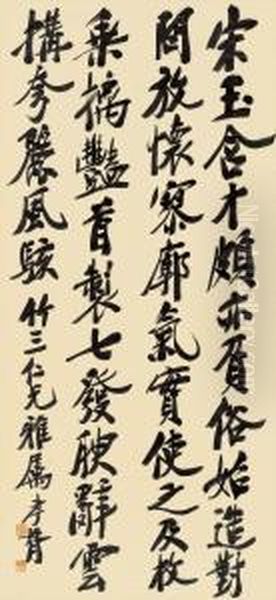 宋玉含才頗亦負俗始造對
問放懷寥廓氣實使之及枚
乘摛豔首製七發腴辭雲
搆夸麗風駭竹三仁兄雅属李瑞